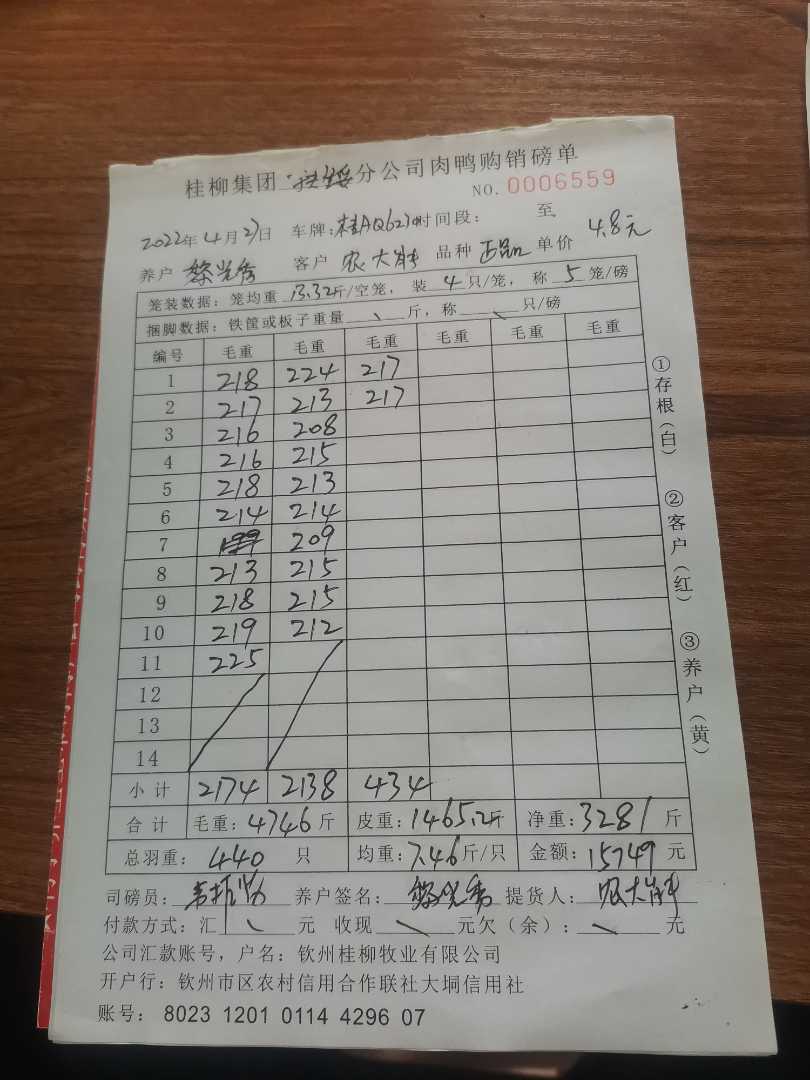 桂柳集团 扶绥 分公司肉鸭购销磅单
NO. 0006559
2022年4月27日 车牌:桂AQ6230 时间段: 至
养户 客户 农大 品种 正品 单价 4.8元
笼装数据: 笼均重 13.32斤/空笼, 装 4 只/笼, 称 5 笼/磅
捆脚数据: 铁筐或板子重量 \ 斤, 称 \ 只/磅
编号 毛重 毛重 毛重 毛重 毛重 毛重
1 218 224 217
2 217 213 217
3 216 208
4 216 215
5 218 213
6 214 214
7 209
8 213 215
9 218 215
10 219 212
11 225
12
13
14
小计 2174 2138 434
合计 毛重: 4746 斤 皮重: 1465.2斤 净重: 3281 斤
总羽重: 440 只 均重: 7.46 斤/只 金额: 15749 元
司磅员: 养户签名: 提货人: 农大
付款方式: 汇 \ 元 收现 \ 元欠(余): \ 元
公司汇款账号, 户名: 钦州桂柳牧业有限公司
开户行: 钦州市区农村信用合作联社大垌信用社
账号: 8023 1201 0114 4296 07
①存根(白)
②客户(红)
③养户(黄)